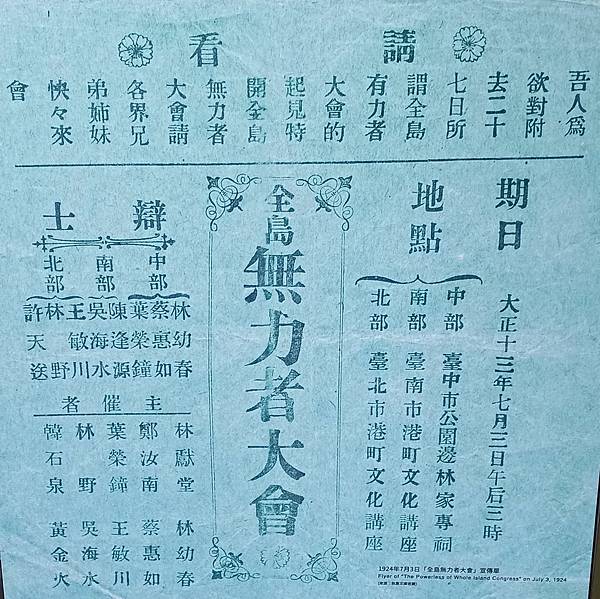 請看
吾人爲
欲對附
去二十
七日所
謂全島
有力者
大會的
起見特
開全島
無力者
大會請
各界兄
弟姊妹
快々來
會
期日
大正十三年七月三日午后三時
地點
中部 臺中市公園邊林家專祠
南部 臺南市港町文化講座
北部 臺北市港町文化講座
全島無力者大會
辯士
中部
林幼春
蔡惠如
葉榮鐘
南部
陳逢源
吳海水
王敏川
北部
林野
許天送
主催者
林獻堂
鄭汝南
葉榮鐘
林野
韓石泉
林幼春
蔡惠如
王敏川
吳海水
黃金火
1924年7月3日「全島無力者大會」宣傳單
Flyer of "The Powerless of Whole Island Congress" on July 3, 1924